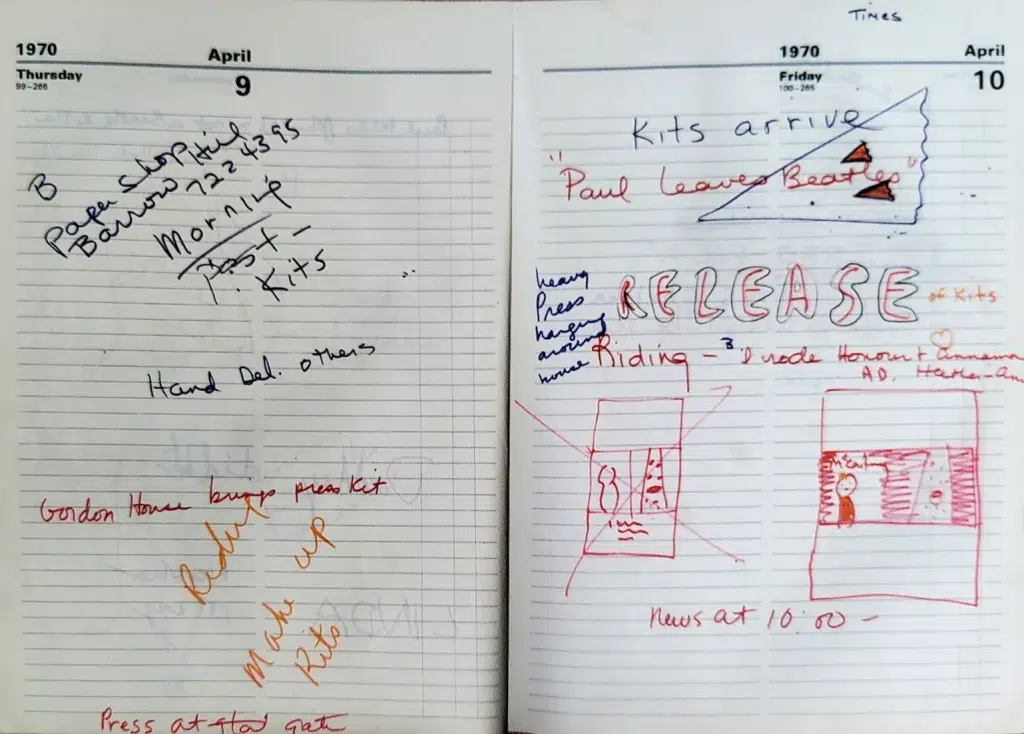 1970 April
Thursday 9
99-266
B
Paper Shop Hill
Barrow 722 4395
Morning
Post -
Kits
Hand Del. others
Gordon House brings press kit
Make up
Kits
Press at gate
Times
1970 April
Friday 10
100-265
Kits arrive
"Paul Leaves Beatles"
heavy
Press
hanging
around
house
RELEASE of Kits
Riding - 3 I rode Honour +
A.D. Heather-Ann
McCartney
News at 10:00 -